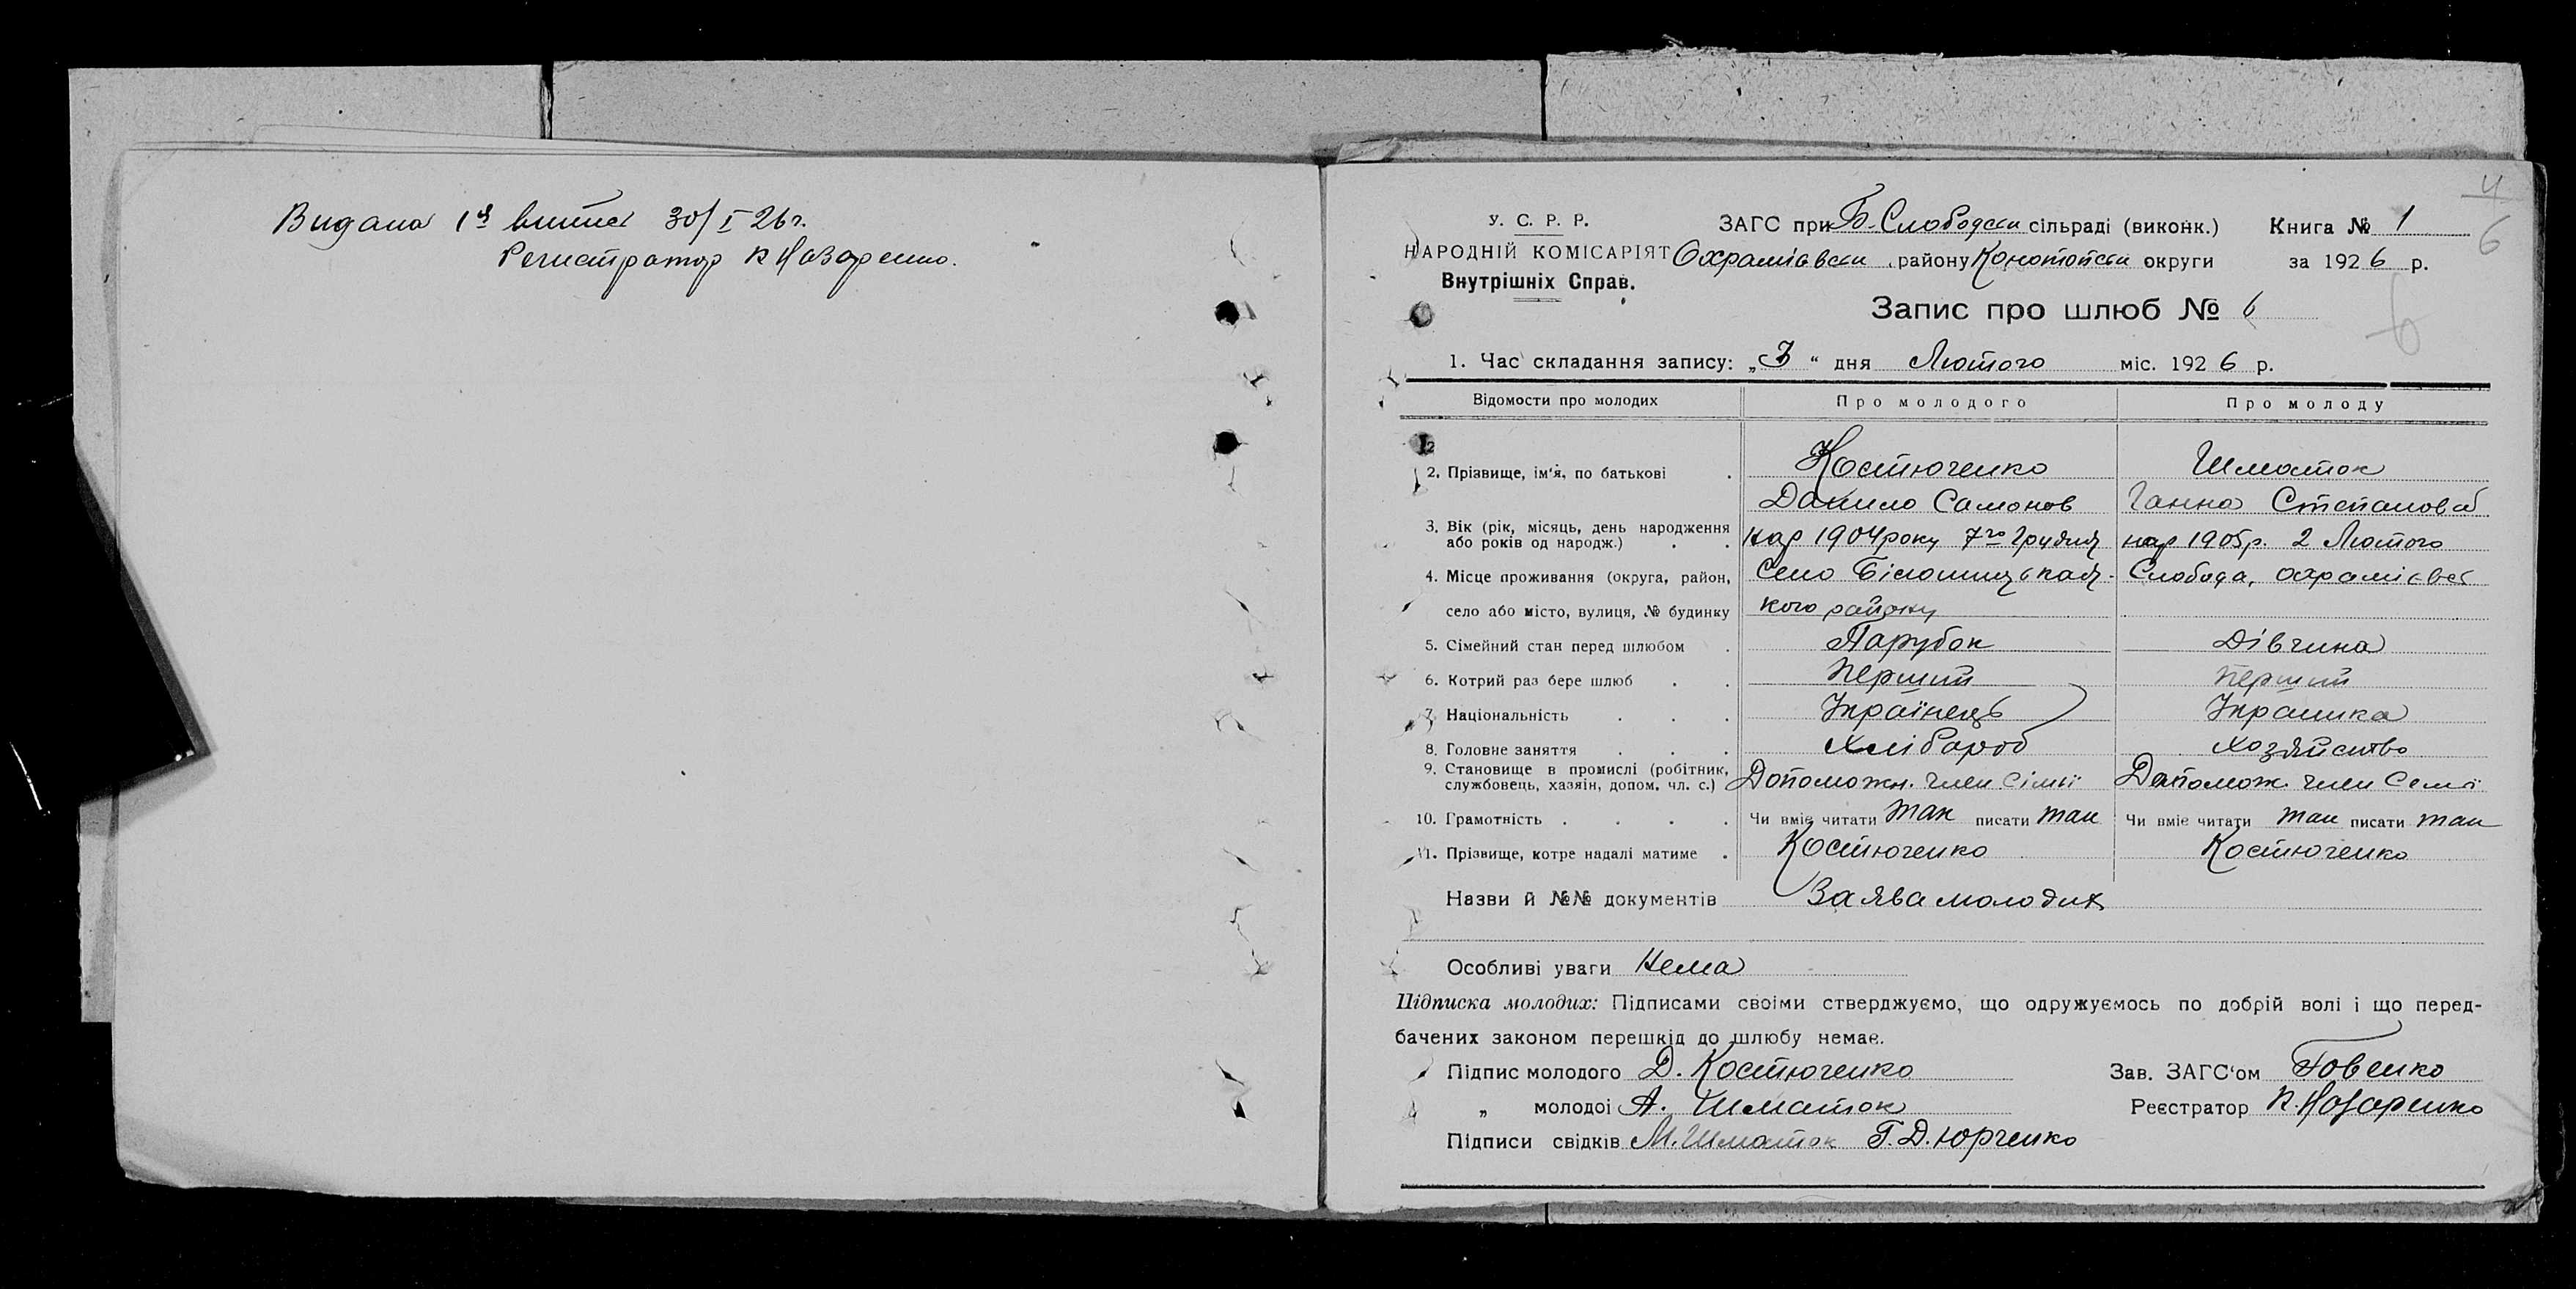 Видана 1й випис 30/I 26 г.
Регистратор К Назаренко.
4
6
У. С. Р. Р.
НАРОДНІЙ КОМІСАРІЯТ
Внутрішніх Справ.
ЗАГС при Б-Слободски сільраді (виконк.) Книга № 1
Охраміевски району Конотопски округи за 1926 р.
Запис про шлюб № 6
6
1. Час складання запису: „3“ дня Лютого міс. 1926 р.
Відомости про молодих Про молодого Про молоду
2. Прізвище, ім'я, по батькові . Костюченко Шматок
Данило Самонов Ганна Степанова
3. Вік (рік, місяць, день народження
або років од народж.) . . нар 1904 року 7го Грудня нар 1905 р. 2 Лютого
4. Місце проживання (округа, район, Село Білошицькая Слобода, охраміевс
село або місто, вулиця, № будинку кого району
5. Сімейний стан перед шлюбом . Парубок Дівчина
6. Котрий раз бере шлюб . . Перший Перший
7. Національність . . . Українець Украинка
8. Головне заняття . . . Хлібароб Хозяйство
9. Становище в промислі (робітник,
службовець, хазяін, допом. чл. с.) Допоможн. член сімьї Допомож. член семї
10. Грамотність . . . . Чи вміє читати так писати так Чи вміє читати так писати так
11. Прізвище, котре надалі матиме . Костюченко Костюченко
Назви й №№ документів Заява молодих
Особливі уваги Нема
Підписка молодих: Підписами своїми стверджуємо, що одружуємось по добрій волі і що перед-
бачених законом перешкід до шлюбу немає.
Підпис молодого Д. Костюченко Зав. ЗАГС'ом Товенко
„ молодоі А. Шматок Реєстратор К. Назаренко
Підписи свідків М. Шматок Г. Д. Юрченко